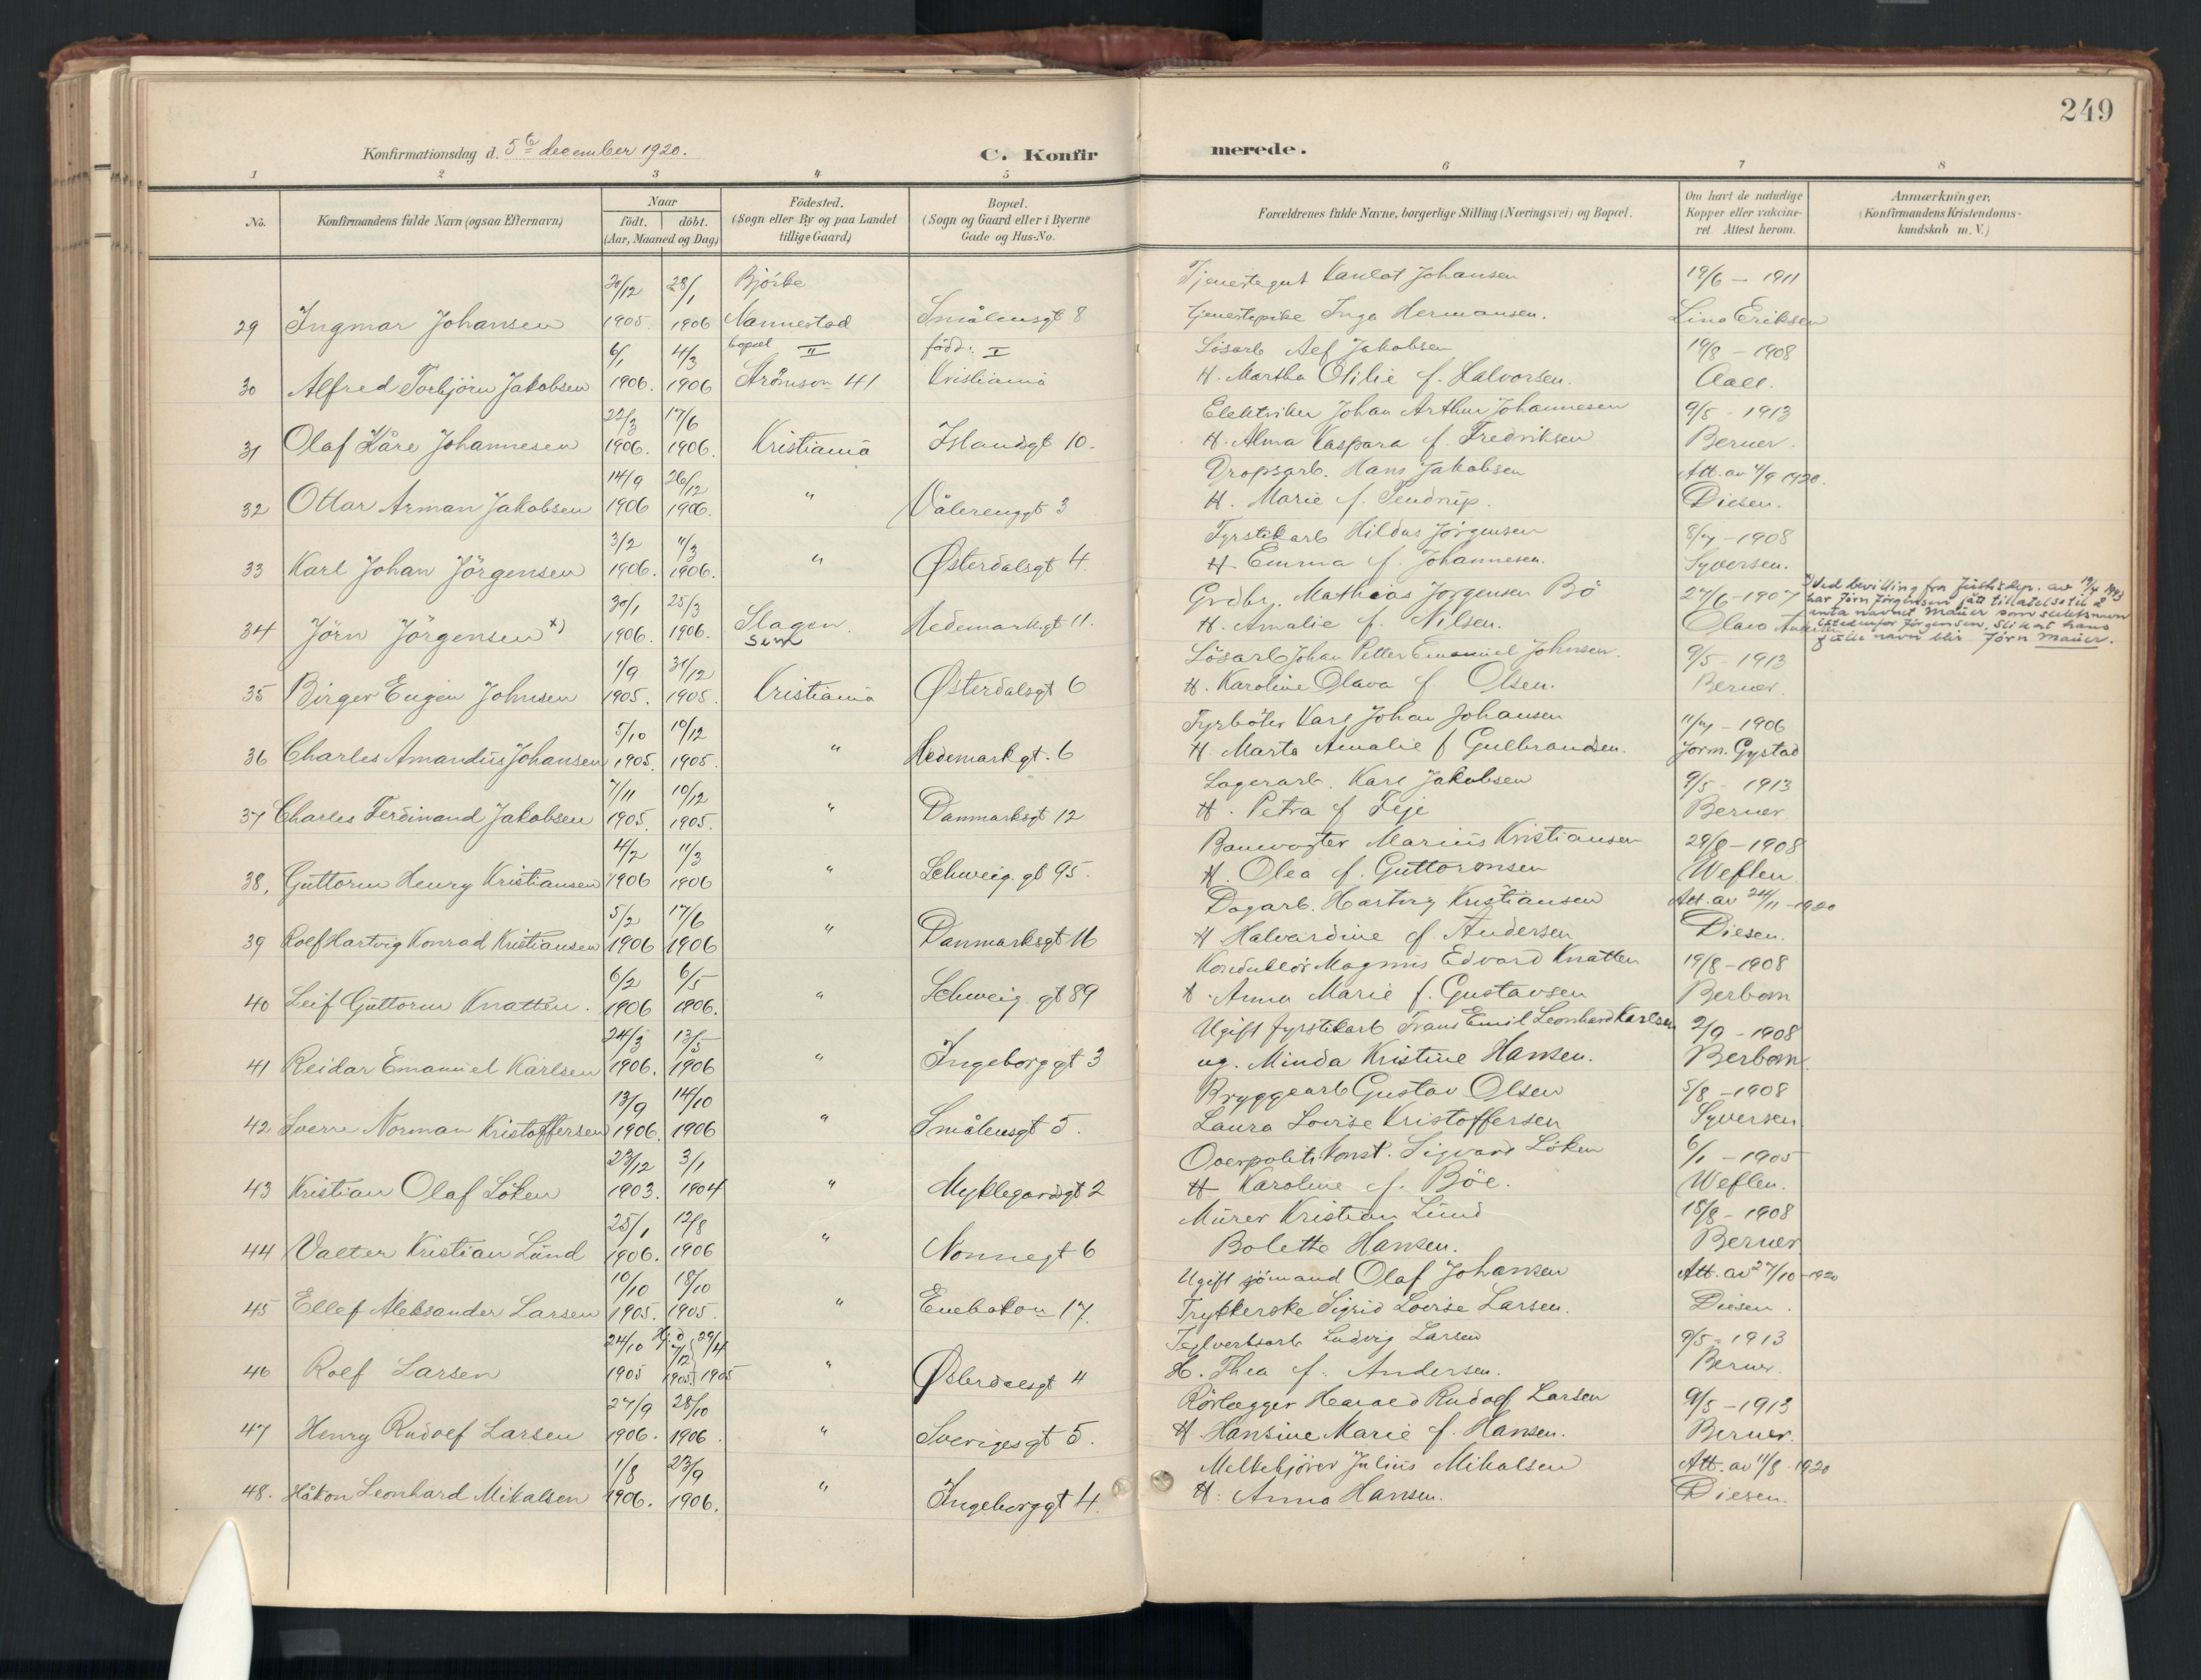 249
Konfirmationsdag d. 5te december 1920.
C. Konfirmerede.
1 2 3 4 5 6 7 8
No.
Konfirmandens fulde Navn (ogsaa Efternavn)
Naar
födt. döbt.
(Aar, Maaned og Dag)
Födested.
(Sogn eller By og paa Landet
tillige Gaard)
Bopæl.
(Sogn og Gaard eller i Byerne
Gade og Hus-No.
Forældrenes fulde Navne, borgerlige Stilling (Næringsvei) og Bopæl.
Om havt de naturlige
Kopper eller vakcine-
ret. Attest herom.
Anmærkninger,
(Konfirmandens Kristendoms-
kundskab m. V.)
30/12 28/1 Björke Tjenestegut Johansen 19/6 - 1911
29 Ingmar Johansen 1905. 1906 Nannestad Smålensgt 8 tjenestepike Inga Hermansen. Lina Eriksen
6/1 4/3 bopæl II född: I Lösarb Alf Jakobsen 19/8 - 1908
30 Alfred Torbjörn Jakobsen 1906. 1906 Strömsvn 41 Kristiania H. Martha Otilie f. Halvorsen. Aall.
22/3 17/6 Elektriker Johan Arthur Johannesen 9/5 - 1913
31 Olaf Kåre Johannesen 1906. 1906. Kristiania Islandsgt 10. H. Alma Kaspara f. Fredriksen Berner.
14/9 26/12 Dropsarb. Hans Jakobsen Att. av 4/9 1920.
32 Ottar Arman Jakobsen 1906 1906. " Vålerenggt 3 H. Marie f. Tendrup. Diesen.
3/2 4/3 Fyrstikarb Hildus Jörgensen 8/7 - 1908
33 Karl Johan Jörgensen 1906. 1906. " Østerdalsgt 4. H Emma f. Johannesen. Syversen.
30/1 25/3 Grdbr. Mathias Jörgensen Bö 27/6 - 1907
34 Jörn Jörgensen x) 1906. 1906. Slagen. Hedemarksgt 11. H. Amalie f. Nilsen. Olava Andersen
Sem
x) Ved bevilling fra Justisdep. av 19/4 1943
har Jörn Jörgensen fått tillatelse til å
anta navnet Mauer som slektsnavn
istedenfor Jörgensen, slik at hans
fulle navn blir Jörn Mauer.
1/9 31/12 Lösarb Johan Petter Emanuel Johnsen. 9/5 - 1913
35 Birger Eugen Johnsen 1905. 1905. Kristiania Østerdalsgt 6 H. Karoline Olava f. Olsen. Berner.
5/10 10/12 Fyrböter Karl Johan Johansen 11/7 - 1906
36 Charles Amandus Johansen 1905. 1905. " Hedemarkgt. 6 H. Marta Amalie f Gulbrandsen. Jorm. Gystad
7/11 10/12 Lagerarb. Karl Jakobsen 9/5 - 1913
37 Charles Ferdinand Jakobsen 1905. 1905. " Danmarksgt 12 H. Petra f Feje Berner
4/2 11/3 Banevogter Marius Kristiansen 29/8 - 1908
38, Guttorm Henry Kristiansen 1906 1906 " Schweig. gt 95. H. Olea f. Guttormsen Weflen.
5/2 17/6 Dagarb. Hartvig Kristiansen Att. av 24/11 - 1920
39 Rolf Hartvig Konrad Kristiansen 1906 1906 " Danmarksgt 16 H Halvardine f Andersen Diesen.
6/2 6/5 Konduktör Magnus Edvard Knatten 19/8 - 1908
40 Leif Guttorm Knatten. 1906 1906. " Schweig. gt 89 H. Anna Marie f. Gustavsen Berbom
24/3 13/5 Ugift fyrstikarb Frans Emil Leonhard Karlsen 2/9 - 1908
41 Reidar Emanuel Karlsen 1906. 1906 " Ingeborggt 3 ug. Minda Kristine Hansen. Berbom.
13/9 14/10 Bryggearb Gustav Olsen 5/8 - 1908
42 Sverre Norman Kristoffersen 1906. 1906 " Smålensgt 5. Laura Lovise Kristoffersen Syversen
23/12 3/1 Overpolitikonst. Sigvard Löken 6/1 - 1905
43 Kristian Olaf Löken 1903. 1904 " Myklegardsgt 2 H Karoline f. Böe. Weflen.
25/1 12/8 Murer Kristian Lund 18/8 - 1908
44 Valter Kristian Lund 1906. 1906 " Nonnegt 6 Bolette Hansen. Berner
10/10 18/10 Ugift sjömand Olaf Johansen Att. av 27/10 - 1920
45 Ellef Aleksander Larsen 1905. 1905. " Enebakvn 17. Trykkerske Sigrid Lovise Larsen. Diesen.
24/10 Hj. d 7/12 29/4 Teglverksarb Ludvig Larsen 9/5 - 1913
46 Rolf Larsen 1905 1905. 1905 " Østerdalsgt 4 H. Thea f. Andersen. Berner.
27/9 28/10 Rörlægger Harald Rudolf Larsen 9/5 - 1913
47 Henry Rudolf Larsen 1906. 1906. " Sverigesgt 5. H Hansine Marie f. Hansen. Berner.
1/8 23/9 Melkekjörer Julius Mikalsen Att. av 11/8 - 1920
48. Håkon Leonhard Mikalsen 1906. 1906. " Ingeborggt 4. H. Anna Hansen. Diesen.